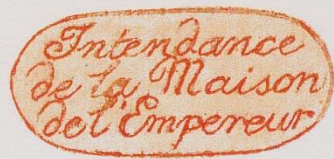 Intendance
de la Maison
de l'Empereur